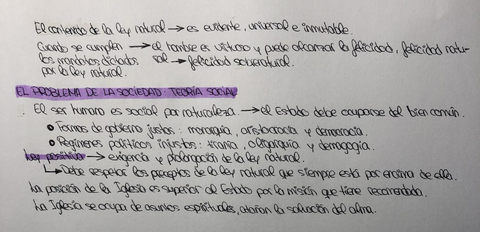 El contenido de la ley natural → es evidente, universal e inmutable.
Cuando se cumplen → el hombre es virtuoso y puede alcanzar la felicidad, felicidad natu-
los mandatos dictados ral → felicidad sobrenatural.
por la ley natural.
EL PROBLEMA DE LA SOCIEDAD: TEORÍA SOCIAL
El ser humano es social por naturaleza. → el Estado debe ocuparse del bien común.
• Formas de gobierno justas: monarquía, aristocracia y democracia.
• Regímenes políticos injustos: tiranía, oligarquía y demagogia.
Ley positiva → exigencia y prolongación de la ley natural.
↳ Debe respetar los preceptos de la ley natural que siempre está por encima de ella.
La posición de la Iglesia es superior al Estado por la misión que tiene recomendada.
La Iglesia se ocupa de asuntos espirituales, atañan la salvación del alma.